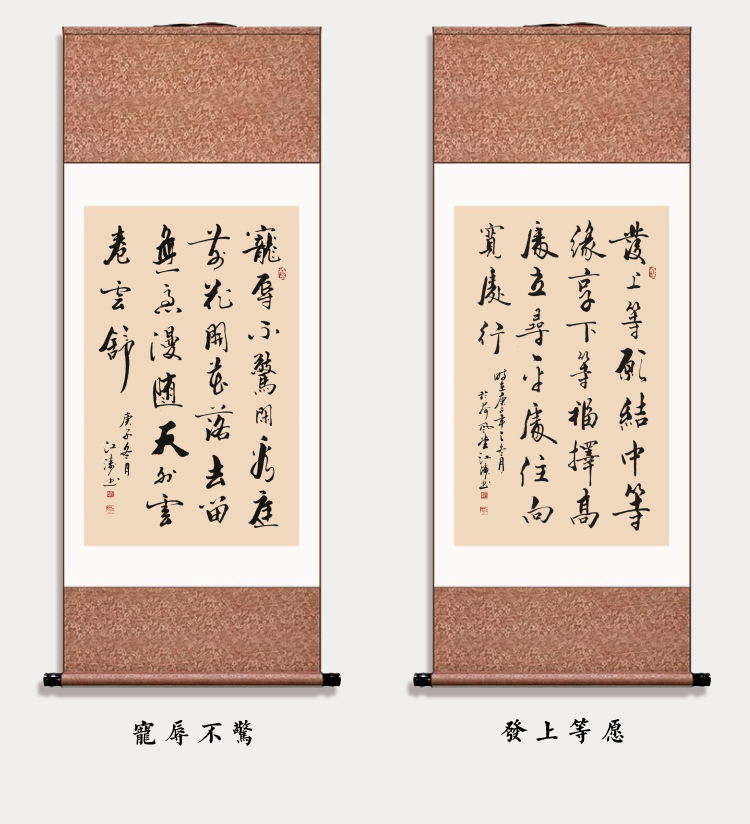 寵辱不驚閑看庭
前花開花落去留
無意漫随天外雲
卷雲舒
庚子冬月
江濤书
發上等愿結中等
緣享下等福擇高
處立尋平處住向
寬處行
時在庚子年之冬月
於荷风堂江濤书
寵辱不驚
發上等愿